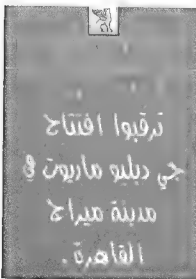 ترقبوا افتتاح
جي دبليو ماريوت في
مدينة ميراج
القاهرة .